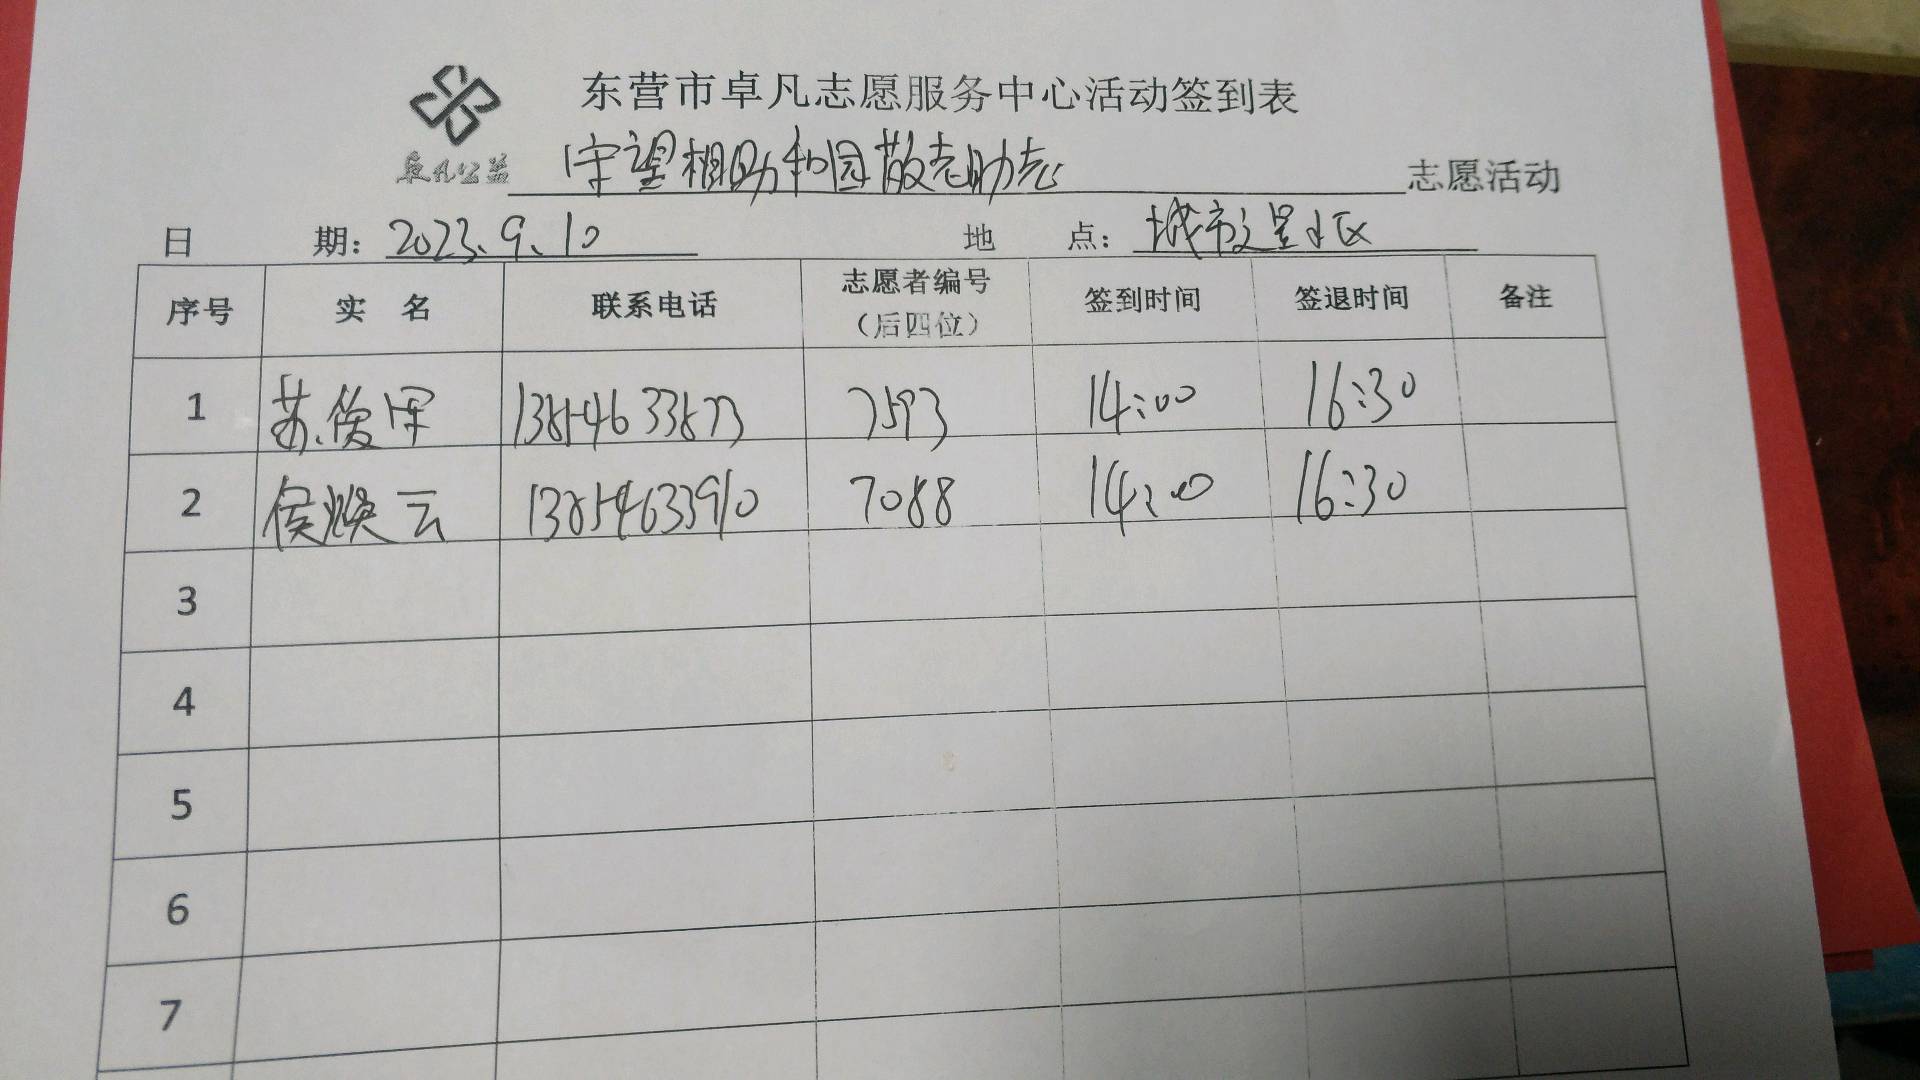 东营市卓凡志愿服务中心活动签到表
卓凡公益 守望相助和园敬老助老 志愿活动
日 期：2023.9.10 地 点：城市之星小区
序号 实 名 联系电话 志愿者编号（后四位） 签到时间 签退时间 备注
1 苏俊军 13854633873 7593 14:00 16:30
2 侯焕云 13854633910 7088 14:00 16:30
3
4
5
6
7